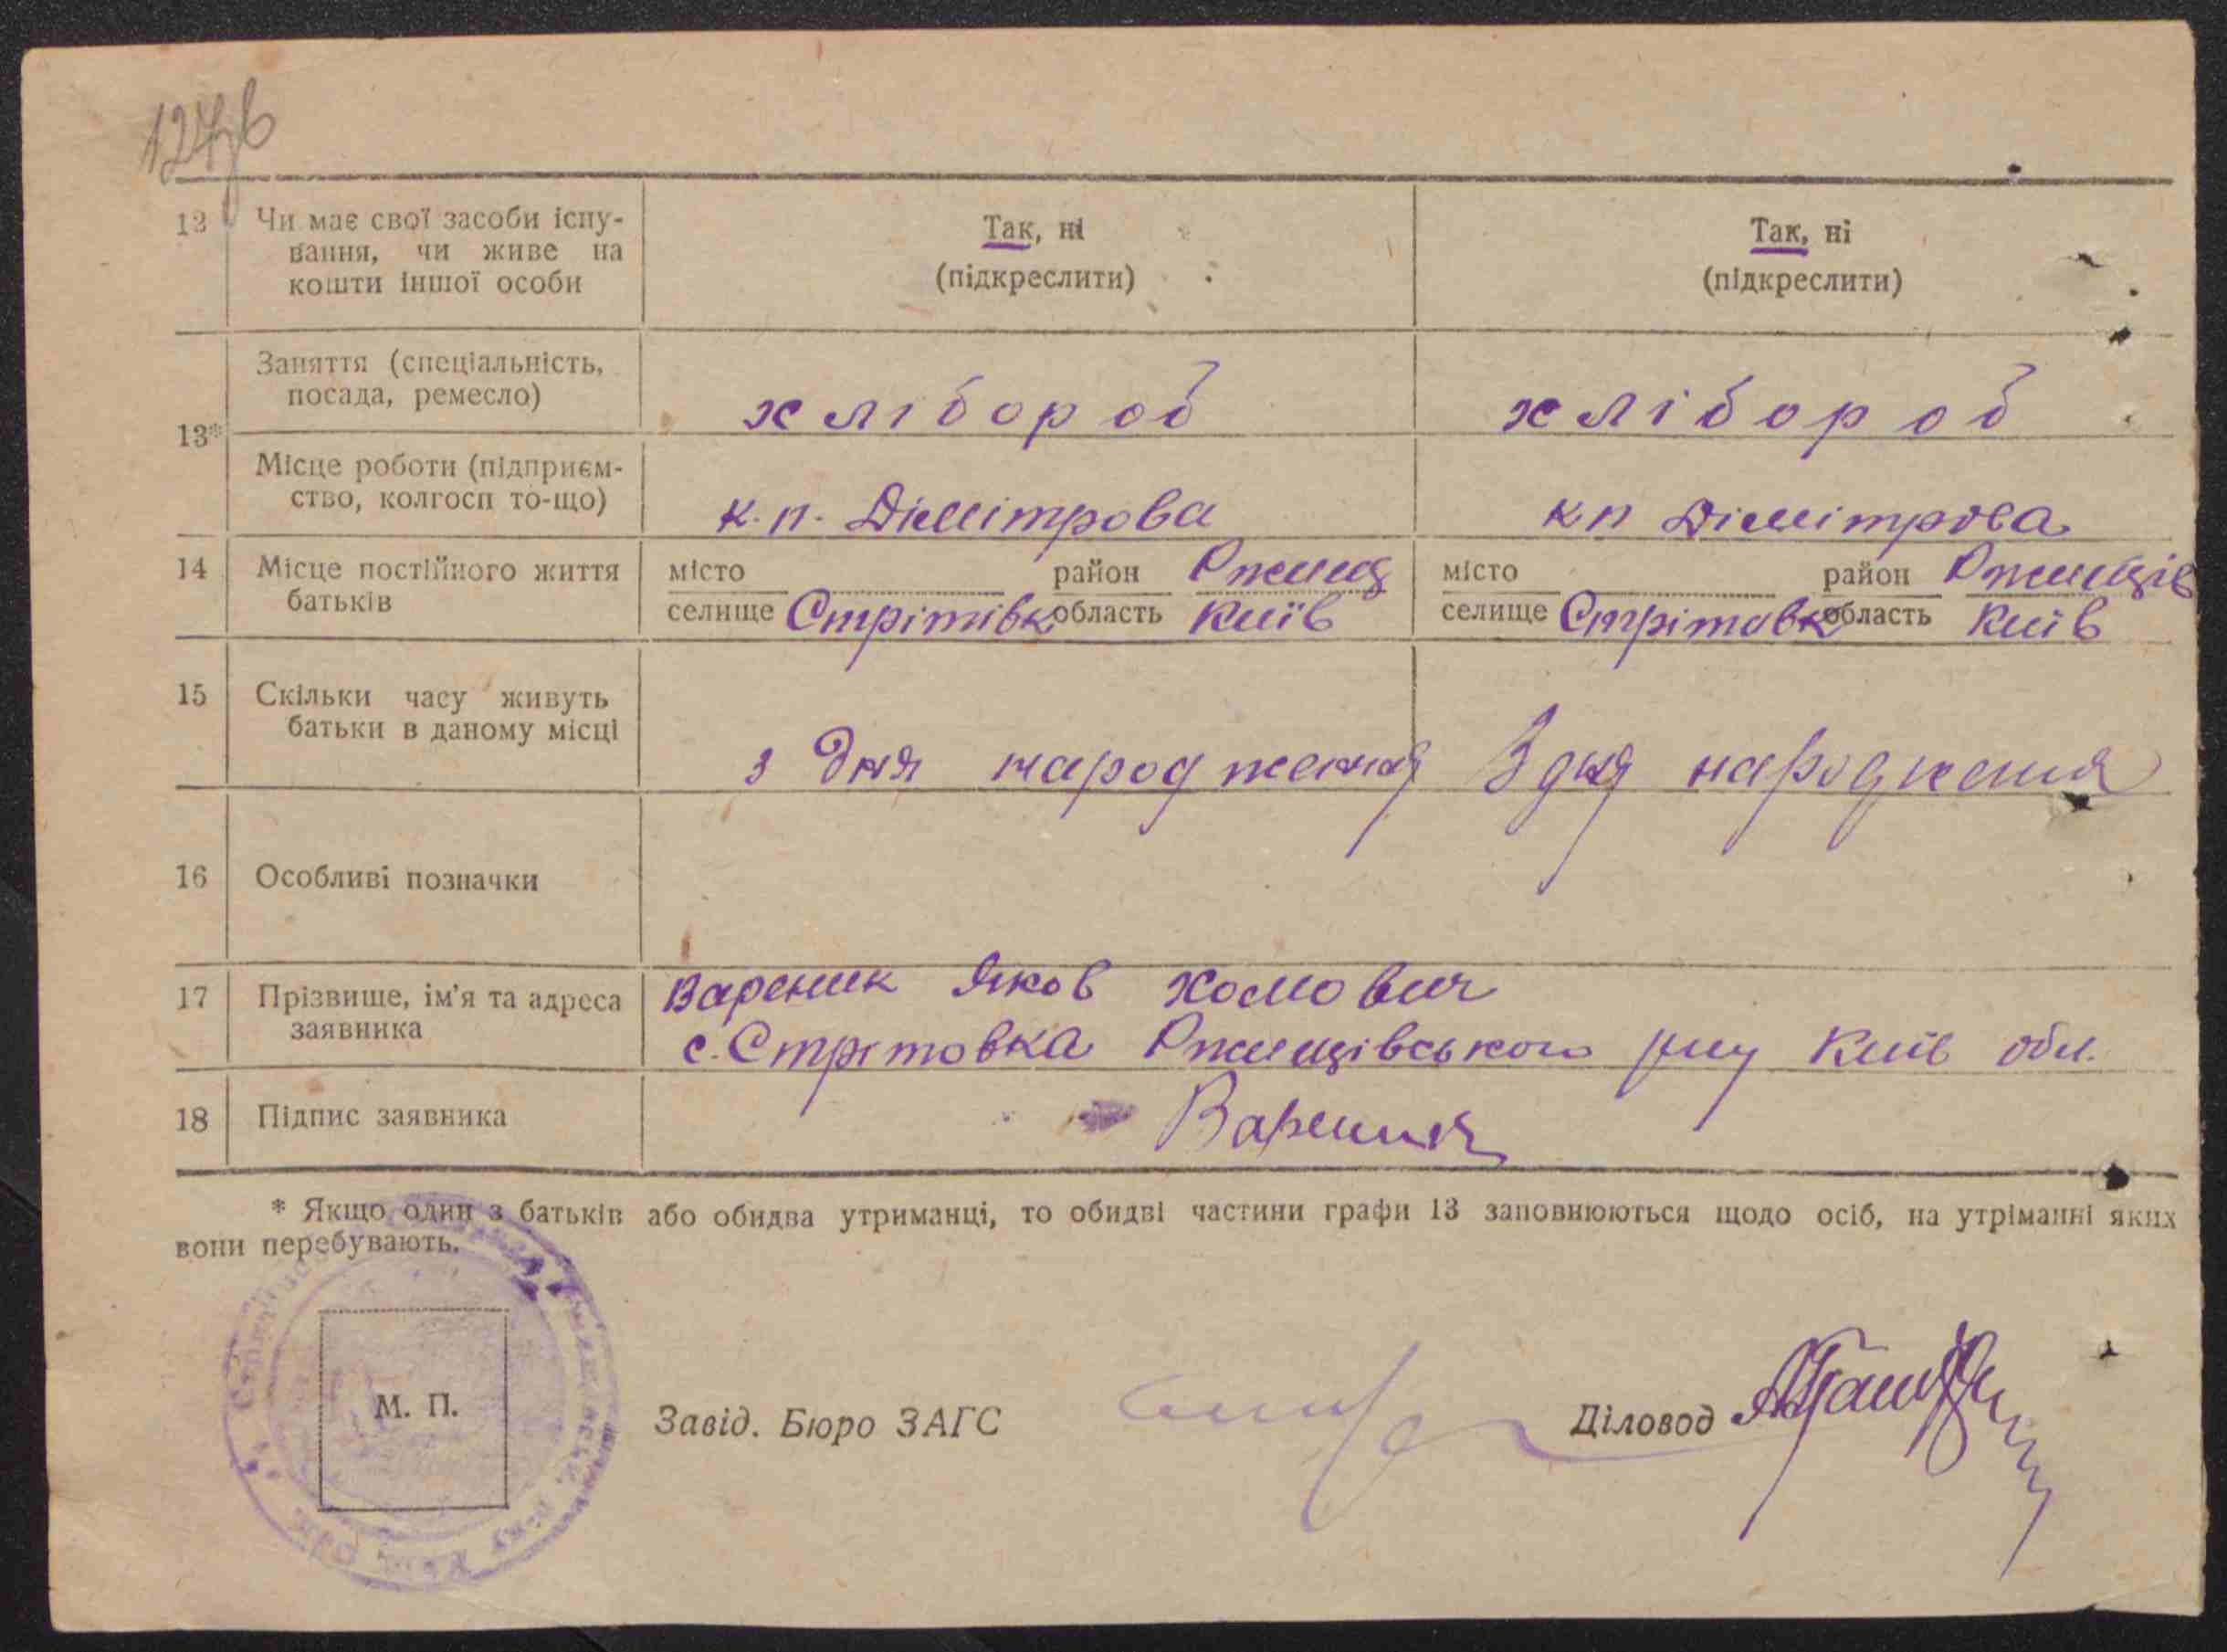 12 Чи має свої засоби існу- Так, ні Так, ні
вання, чи живе на (підкреслити) (підкреслити)
кошти іншої особи
Заняття (спеціальність,
посада, ремесло) хлібороб хлібороб
13*
Місце роботи (підприєм-
ство, колгосп то-що) к.п. Дімітрова кп Дімітрова
14 Місце постійного життя місто район Ржищ місто район Ржищів
батьків селище Стрітівк область Київ селище Стрітовк область Київ
15 Скільки часу живуть
батьки в даному місці з дня народження З дня народження
16 Особливі позначки
17 Прізвище, ім'я та адреса Вареник Яков Хомович
заявника с. Стрітовка Ржищівського р-ну Київ обл.
18 Підпис заявника Вареник
* Якщо один з батьків або обидва утриманці, то обидві частини графи 13 заповнюються щодо осіб, на утріманні яких
вони перебувають.
М. П.
Завід. Бюро ЗАГС Діловод